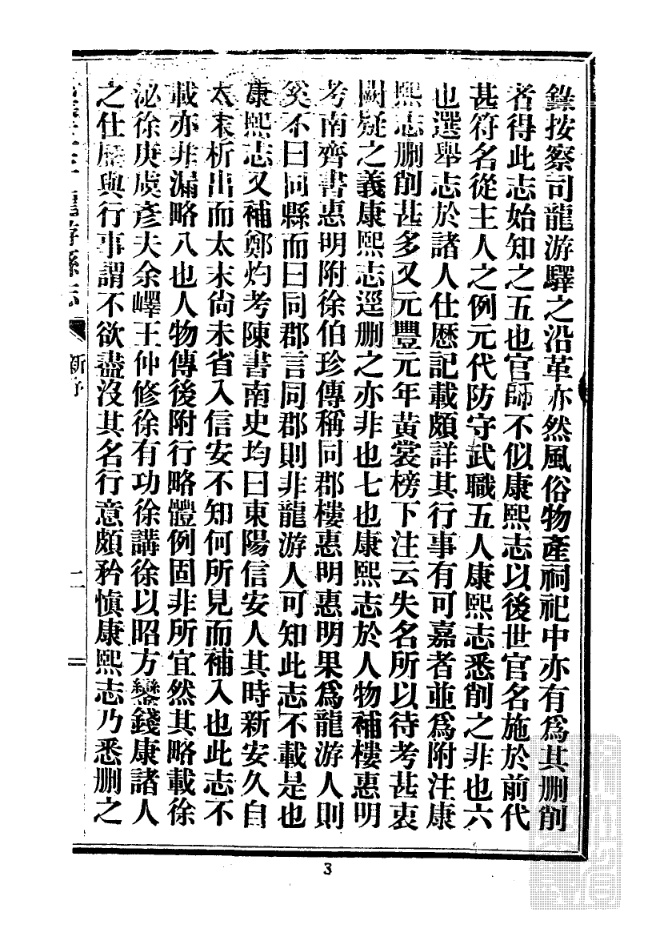 錄按察司龍游驛之沿革亦然風俗物產祠祀中亦有爲其删削
者得此志始知之五也官師不似康熙志以後世官名施於前代
甚符名從主人之例元代防守武職五人康熙志悉削之非也六
也選舉志於諸人仕歷記載頗詳其行事有可嘉者並爲附注康
熙志删削甚多又元豐元年黃裳榜下注云失名所以待考甚衷
闕疑之義康熙志逕删之亦非也七也康熙志於人物補樓惠明
考南齊書惠明附徐伯珍傳稱同郡樓惠明惠明果爲龍游人則
奚不曰同縣而曰同郡言同郡則非龍游人可知此志不載是也
康熙志又補鄭灼考陳書南史均曰東陽信安人其時新安久自
太末析出而太末尙未省入信安不知何所見而補入也此志不
載亦非漏略八也人物傳後附行略體例固非所宜然其略載徐
泌徐庚虞彥夫余嶧王仲修徐有功徐講徐以昭方鑾錢康諸人
之仕歷與行事謂不欲盡沒其名行意頗矜愼康熙志乃悉删之
龍游縣志
新序
二
3